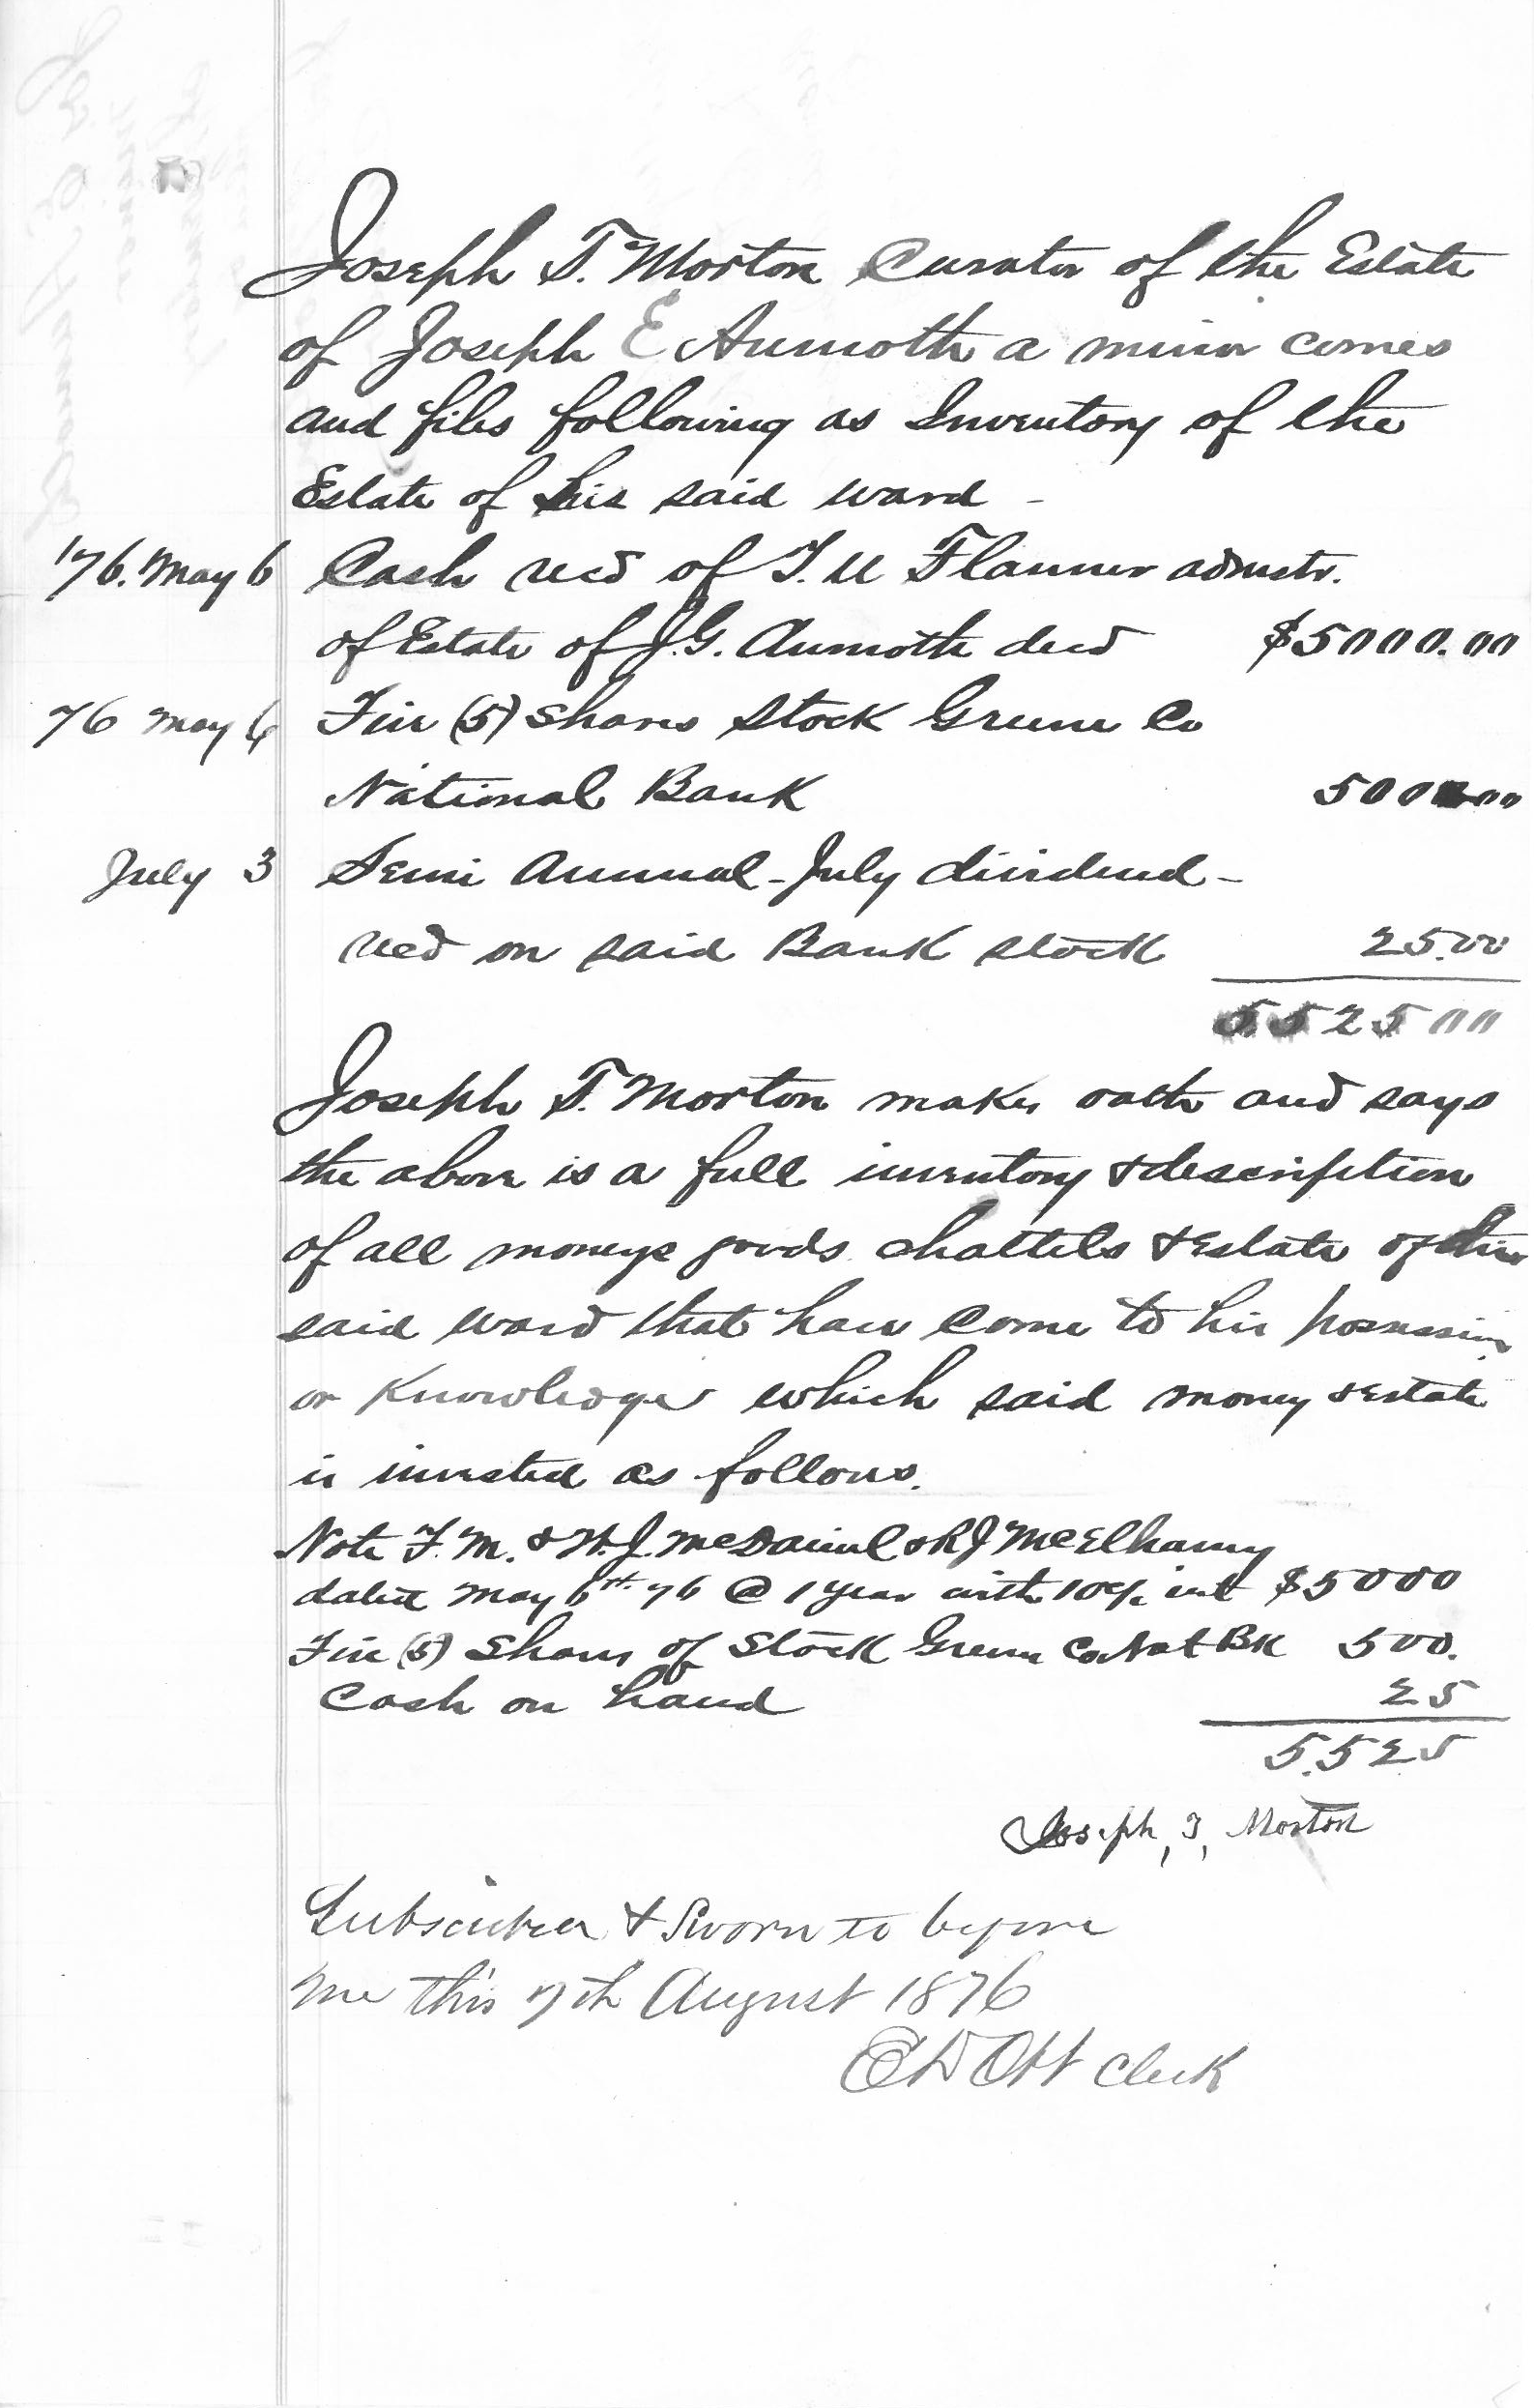 Joseph T. Morton Curator of the Estate
of Joseph E Aumoth a minor comes
and files following as Inventory of the
Estate of his said ward -
'76. May 6 Cash recd of T. U Flanner admstr.
of Estate of J. G. Aumoth decd $5000.00
76 May 6 Five (5) shares stock Greene Co
National Bank 500 00
July 3 Semi Annual - July dividend -
recd on said Bank stock 25.00
5525 00
Joseph T. Morton makes oath and says
the above is a full inventory & description
of all moneys goods chattels & Estate of his
said ward that have come to his possession
or Knowledge which said money & estate
is invested as follows.
Note F. M. & W. J. McDaniel & R J McElhany
dated May 6th 76 @ 1 year with 10% int $5000
Five (5) Shares of Stock Greene Co Nat Bk 500.
Cash on hand 25
5.525
Joseph, T, Morton
Subscribed & Sworn to before
me this 7th August 1876
E D Ott Clerk